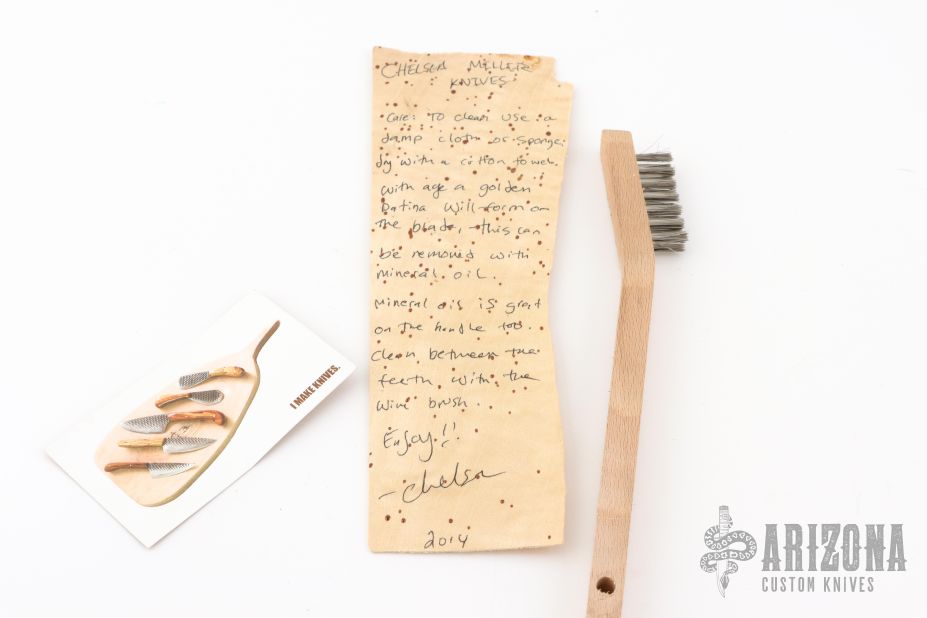 CHELSEA MILLER
KNIVES
Care: To clean use a
damp cloth or sponge;
dry with a cotton towel.
with age a golden
patina will form on
the blade, this can
be removed with
mineral oil.
Mineral oil is great
on the handle too.
Clean between the
teeth with the
wire brush.
Enjoy!!
- Chelsea
2014
I MAKE KNIVES.
ARIZONA
CUSTOM KNIVES